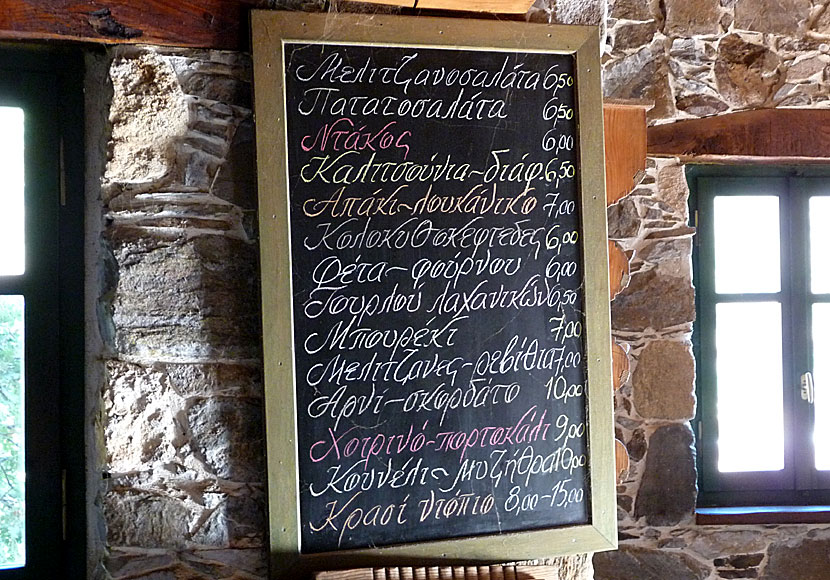 Μελιτζανοσαλάτα 6,50
Πατατοσαλάτα 6,50
Ντάκος 6,00
Καλιτσούνια~διάφ. 6,50
Απάκι~λουκάνικο 7,00
Κολοκυθοκεφτέδες 6,00
Φέτα~φούρνου 6,00
Τουρλού λαχανικών 6,50
Μπουρέκι 7,00
Μελιτζάνες~ρεβίθια 7,00
Αρνί~σκορδάτο 10,00
Χοιρινό~πορτοκάλι 9,00
Κουνέλι~Μυζήθρα 10,00
Κρασί ντόπιο 8,00-15,00